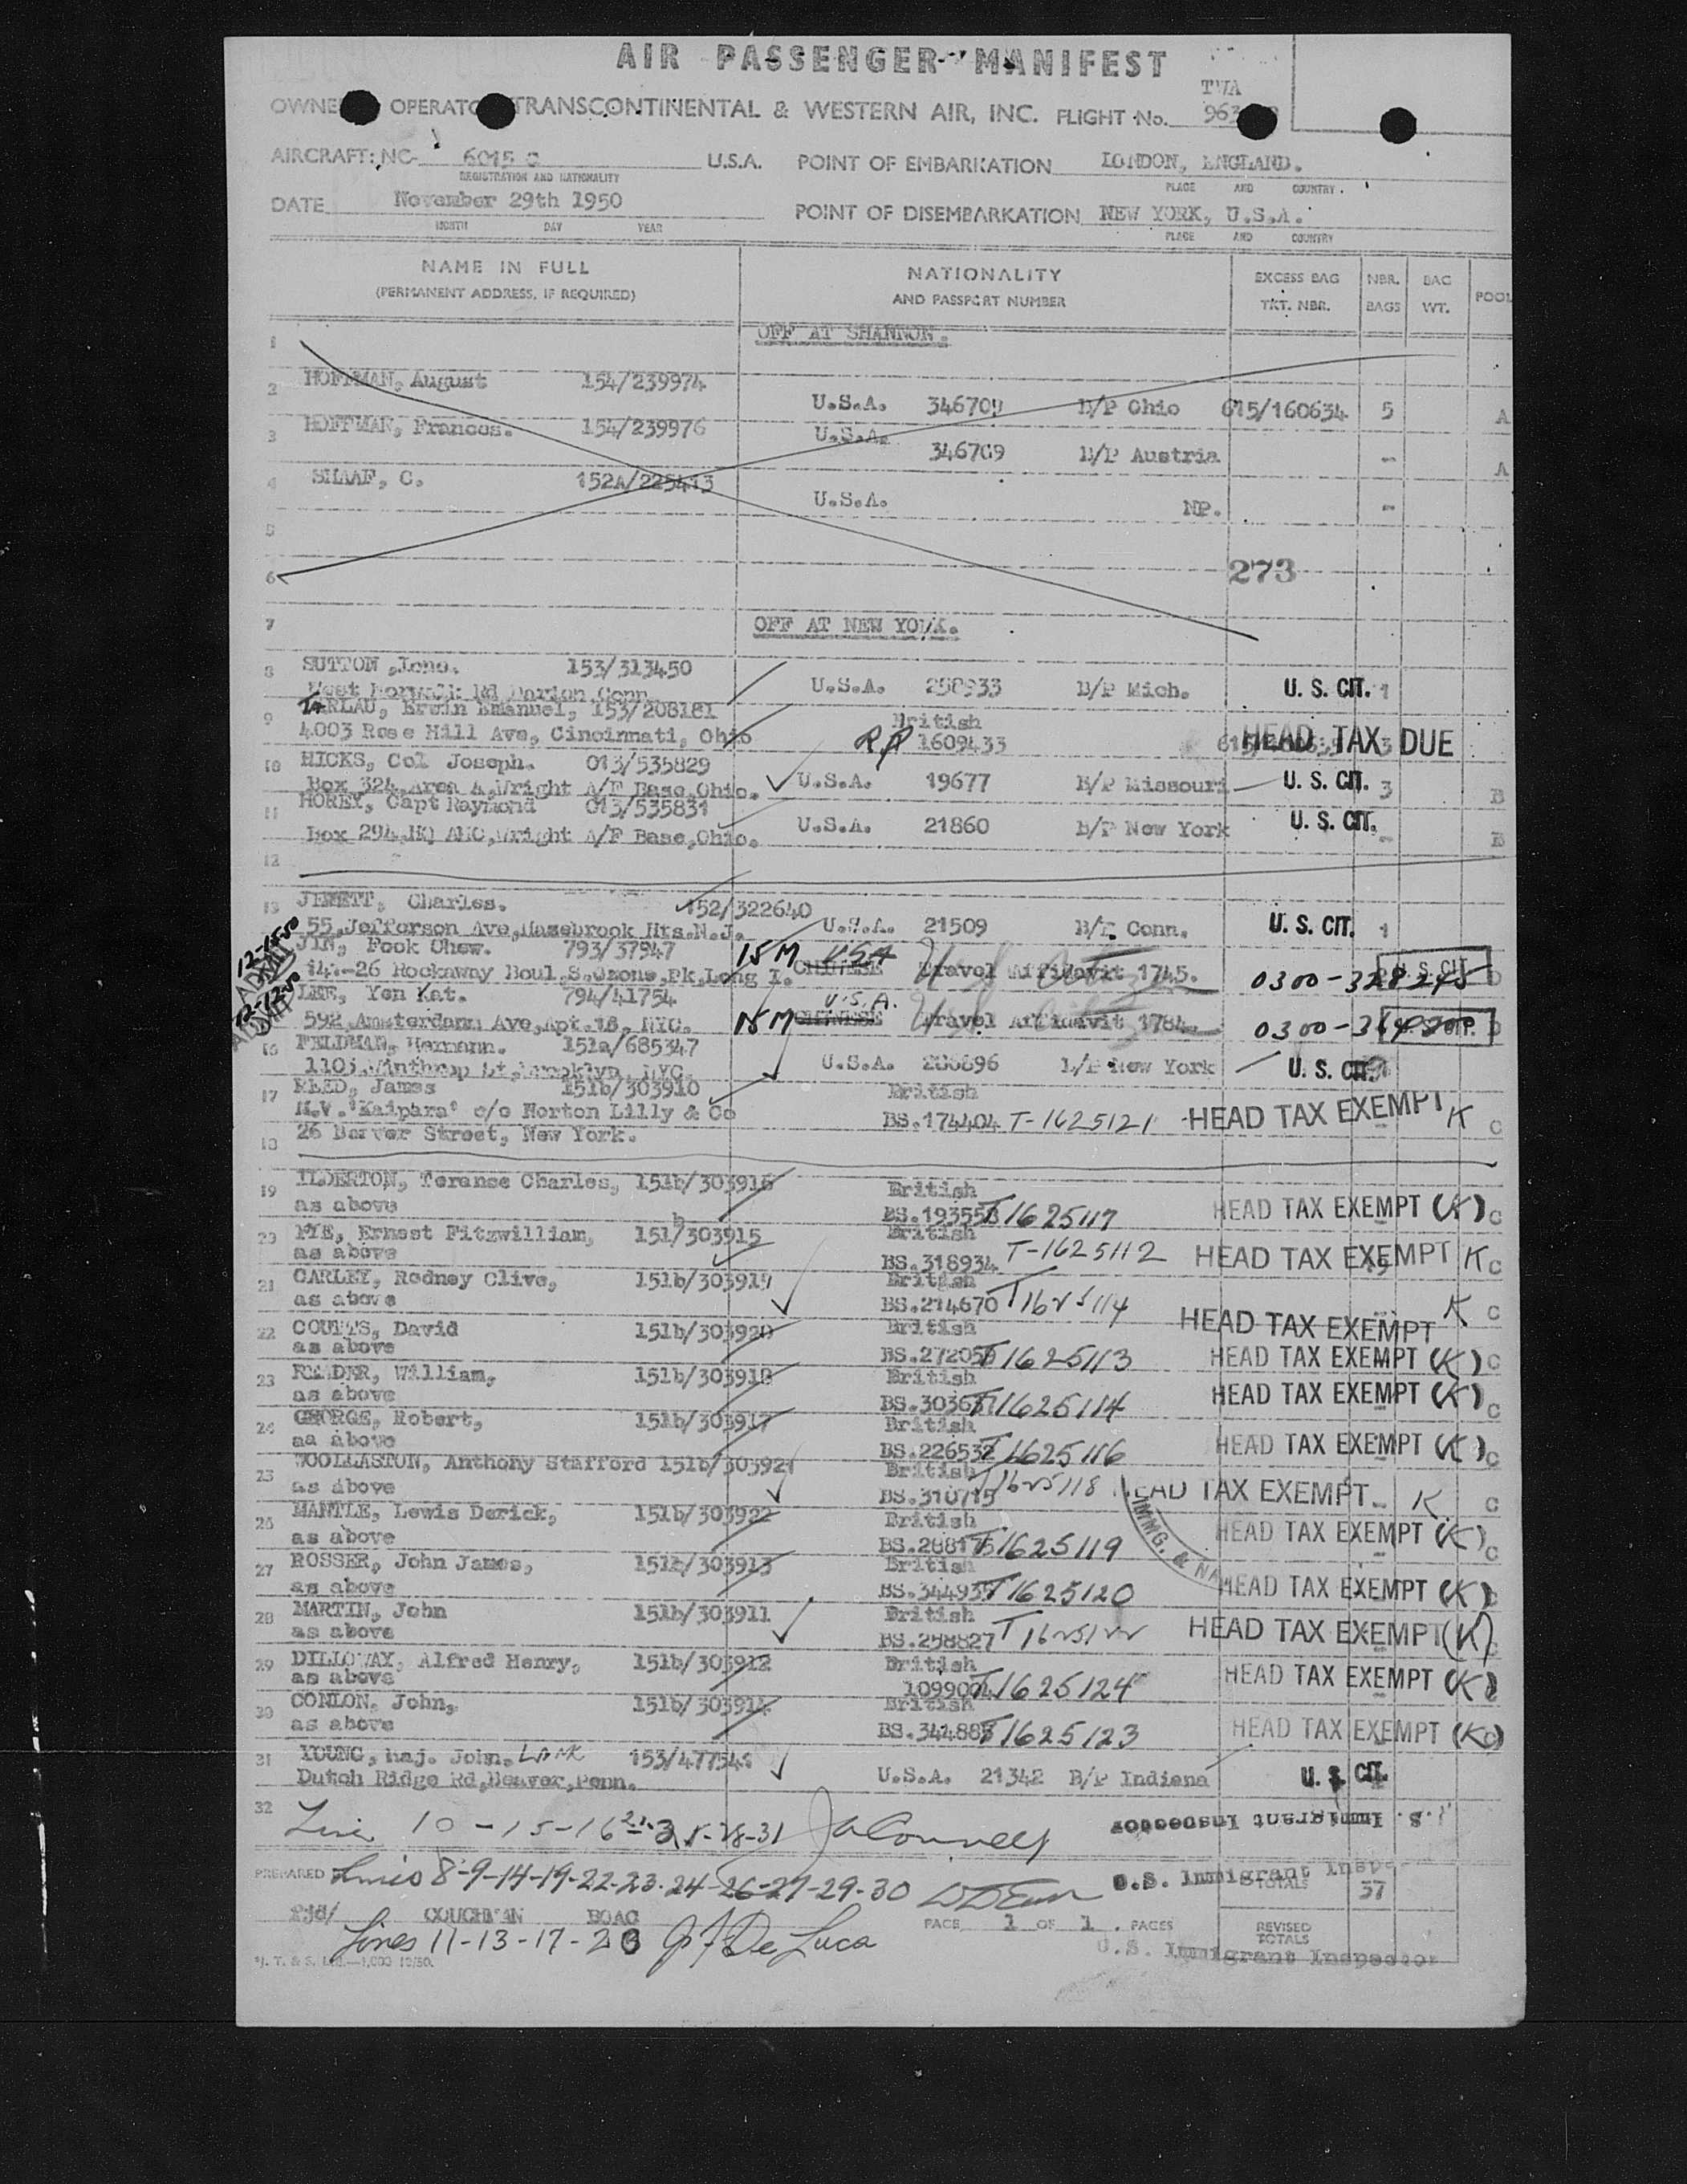 AIR PASSENGER MANIFEST
OPERATO TRANSCONTINENTAL & WESTERN AIR, INC. FLIGHT No. TWA 963
AIRCRAFT: NC- 6015 C U.S.A. POINT OF EMBARKATION LONDON, ENGLAND.
REGISTRATION AND NATIONALITY PLACE AND COUNTRY
DATE November 29th 1950 POINT OF DISEMBARKATION NEW YORK, U.S.A.
MONTH DAY YEAR PLACE AND COUNTRY
NAME IN FULL NATIONALITY EXCESS BAG NBR. BAG POOL
(PERMANENT ADDRESS, IF REQUIRED) AND PASSPORT NUMBER TKT. NBR. BAGS WT.
1 OFF AT SHANNON.
2 HOFFMAN, August 154/239974
U.S.A. B/P Ohio 615/160634 5 A
3 HOFFMAN, Frances. 154/239976 U.S.A.
346709 B/P Austria - A
4 SHAAF, C. 152A/225413
U.S.A. NP. -
5
6 273
7 OFF AT NEW YORK.
8 SUTTON, 153/313450
West Norwalk Rd Darien Conn U.S.A. 258933 B/P Mich. U. S. CIT. 1
9 TARLAU, Erwin Emanuel, 153/208181 British
4003 Rose Hill Ave, Cincinnati, Ohio RP 1609433 HEAD TAX DUE 3
10 HICKS, Col Joseph. 013/535829
Box 324, Area A, Wright A/F Base, Ohio. U.S.A. 19677 B/P Missouri U. S. CIT. 3 B
11 HOREY, Capt Raymond 013/535831
Box 294, HQ AMC, Wright A/F Base, Ohio. U.S.A. 21860 B/P New York U. S. CIT. - B
12
13 JEWETT, Charles. 152/322640
55, Jefferson Ave, Hasebrook Hts. N.J. U.S.A. 21509 B/P Conn. U. S. CIT. 1
JIN, Fook Chew. 793/37547 15M USA
-26 Rockaway Boul, S. Ozone, Pk, Long I. CHINESE Travel Affidavit 1745. 0300-328245 U. S. CIT.
LEE, Yen Kat. 794/41754 U.S.A.
592, Amsterdam Ave, Apt. 18, NYC. 15M CHINESE Travel Affidavit 1784. 0300-
16 FELDMAN, Hermann. 151a/685347
1105, Winthrop St, Brooklyn, NYC. U.S.A. B/P New York U. S. CIT.
17 REED, James 151b/303910 British
M.V. 'Kaipara' c/o Norton Lilly & Co BS.174404 T-1625121 HEAD TAX EXEMPT K C
18 26 Beaver Street, New York.
19 ILDERTON, Terense Charles, 151b/303916 British
as above BS.193558 T1625117 HEAD TAX EXEMPT (K) C
20 PYE, Ernest Fitzwilliam, 151b/303915 British
as above BS.318934 T-1625112 HEAD TAX EXEMPT K C
21 CARLEY, Rodney Clive, 151b/303919 British
as above BS.214670 HEAD TAX EXEMPT K C
22 COUTTS, David 151b/303920 British
as above T1625113 HEAD TAX EXEMPT (K) C
23 READER, William, 151b/303918 British
as above T1625114 HEAD TAX EXEMPT (K) C
24 GEORGE, Robert, 151b/303917 British
aa above BS.226532 T1625116 HEAD TAX EXEMPT (K) C
25 WOOLLASTON, Anthony Stafford 151b/303921 British
as above BS.310715 T1625118 HEAD TAX EXEMPT - K C
26 MANTLE, Lewis Derick, 151b/303922 British
as above T1625119 HEAD TAX EXEMPT (K) C
IMMG. & NA
27 ROSSER, John James, 151b/303913 British
as above T1625120 HEAD TAX EXEMPT (K) C
28 MARTIN, John 151b/303911 British
as above BS.298827 T1625122 HEAD TAX EXEMPT (K) C
29 DILLOWAY, Alfred Henry, 151b/303912 British
as above T1625124 HEAD TAX EXEMPT (K)
30 CONLON, John, 151b/303914 British
as above T1625123 HEAD TAX EXEMPT (K) C
31 YOUNG, Maj. John, 153/477541
Dutch Ridge Rd, Beaver, Penn. U.S.A. 21342 B/P Indiana U. S. CIT.
32 10-15-16 U.S. Immigrant Inspector
PREPARED Lines 8-9-14-19-22-23-24-26-27-29-30 U.S. Immigrant Inspe TOTALS 37
COUCHMAN BOAC PAGE 1 OF 1. PAGES REVISED TOTALS
Lines 11-13-17-20 De Luca U.S. Immigrant Inspector